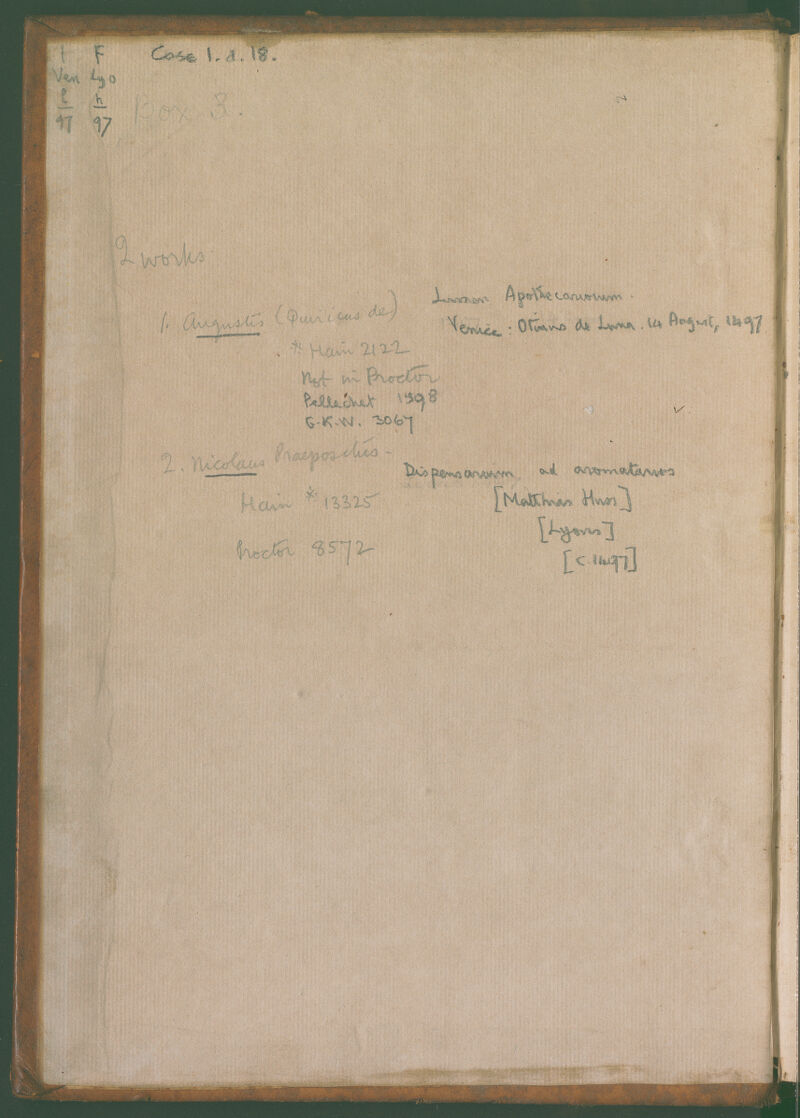 I F Case 1. d. 18.
Ven Lyo
l h
97 97
Box 3.
2 works
Lumen Apothecariorum.
1. Augustis (Quiricus de)
Venice: Otinus de Luna. 14 August, 1497
* Hain 2122
Not in Proctor
Pellechet 1598
G.K.W. 3067
2. Nicolaus Praepositus -
Dispensarium ad aromatarios
Hain * 13325
[Matthias Huss]
[Lyons]
Proctor 8572
[c. 1497]